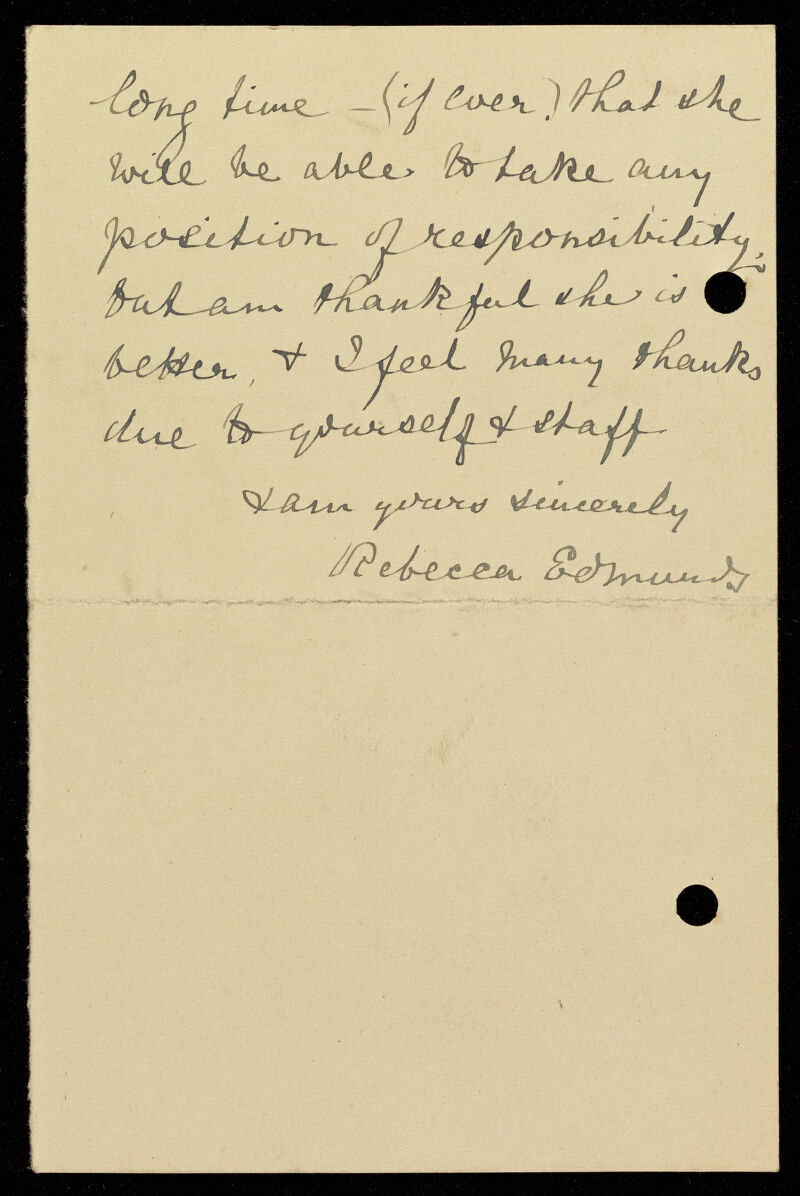 long time - (if ever) that she
will be able to take any
position of responsibility,
but am thankful she is
better, & I feel many thanks
due to yourself & staff
& am yours sincerely
Rebecca Edmunds